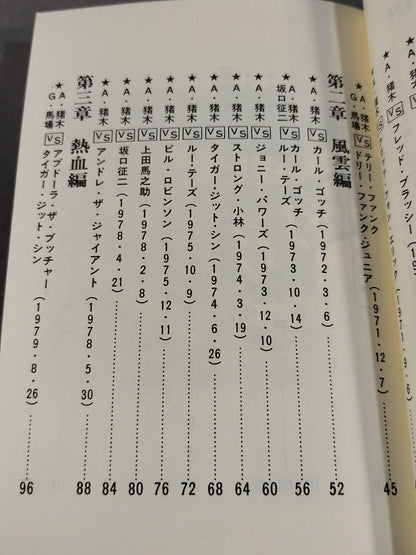 VS フレッド・ブラッシー
猪木 VS テリー・ファンク
ドリー・ファンク・ジュニア(1971・12・7)……45
第二章 風雲編
★A・猪木 VS カール・ゴッチ(1972・3・6)……52
★A・猪木 VS カール・ゴッチ
坂口征二 ルー・テーズ(1973・10・14)……56
★A・猪木 VS ジョニー・パワーズ(1973・12・10)……60
★A・猪木 VS ストロング・小林(1974・3・19)……64
★A・猪木 VS タイガー・ジット・シン(1974・6・26)……68
★A・猪木 VS ルー・テーズ(1975・10・9)……72
★A・猪木 VS ビル・ロビンソン(1975・12・11)……76
★A・猪木 VS 上田馬之助(1978・2・8)……80
★A・猪木 VS 坂口征二(1978・4・21)……84
★A・猪木 VS アンドレ・ザ・ジャイアント(1978・5・30)……88
第三章 熱血編
★A・猪木 VS アブドーラ・ザ・ブッチャー
G・馬場 タイガー・ジット・シン(1979・8・26)……96